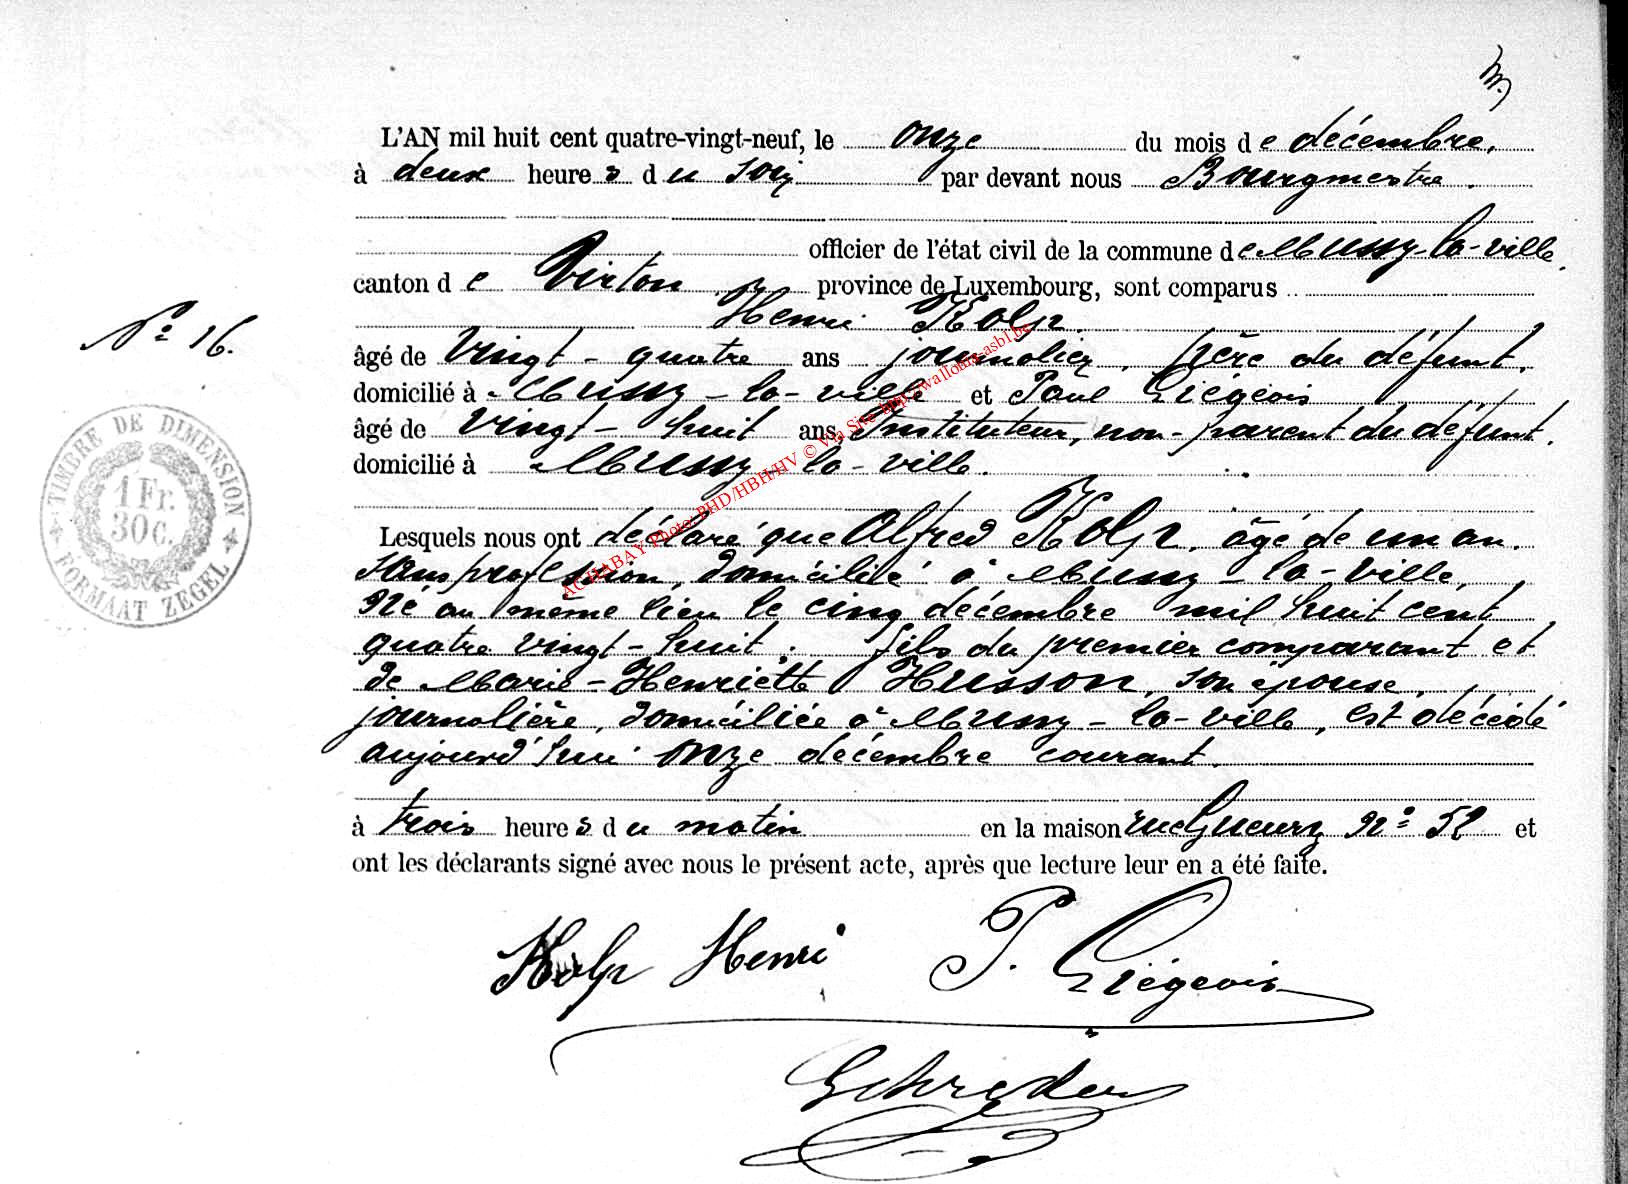 L'AN mil huit cent quatre-vingt-neuf, le onze du mois de décembre,
à deux heures du soir par devant nous Bourgmestre.
officier de l'état civil de la commune de Mussy-la-ville,
canton de Virton province de Luxembourg, sont comparus
Henri Kolp.
N° 16.
âgé de vingt-quatre ans journalier, père du défunt,
domicilié à Mussy-la-ville et Paul Liégeois
âgé de vingt-huit ans, Instituteur, non-parent du défunt,
domicilié à Mussy-la-ville.
TIMBRE DE DIMENSION
1 Fr.
30 C.
FORMAAT ZEGEL
Lesquels nous ont déclaré que Alfred Kolp, âgé de un an,
sans profession, domicilié à Mussy-la-ville,
né au même lieu le cinq décembre mil huit cent
quatre vingt-huit, fils du premier comparant et
de Marie-Henriette Husson, son épouse,
journalière, domiciliée à Mussy-la-ville, est décédé
aujourd'hui onze décembre courant.
à trois heures du matin en la maison rue Gueury N° 52 et
ont les déclarants signé avec nous le présent acte, après que lecture leur en a été faite.
Kolp Henri P. Liégeois
Schreder
ACHABAY Photo: PHD/HBH/HV © Via Site http://wallonia-asbl.be